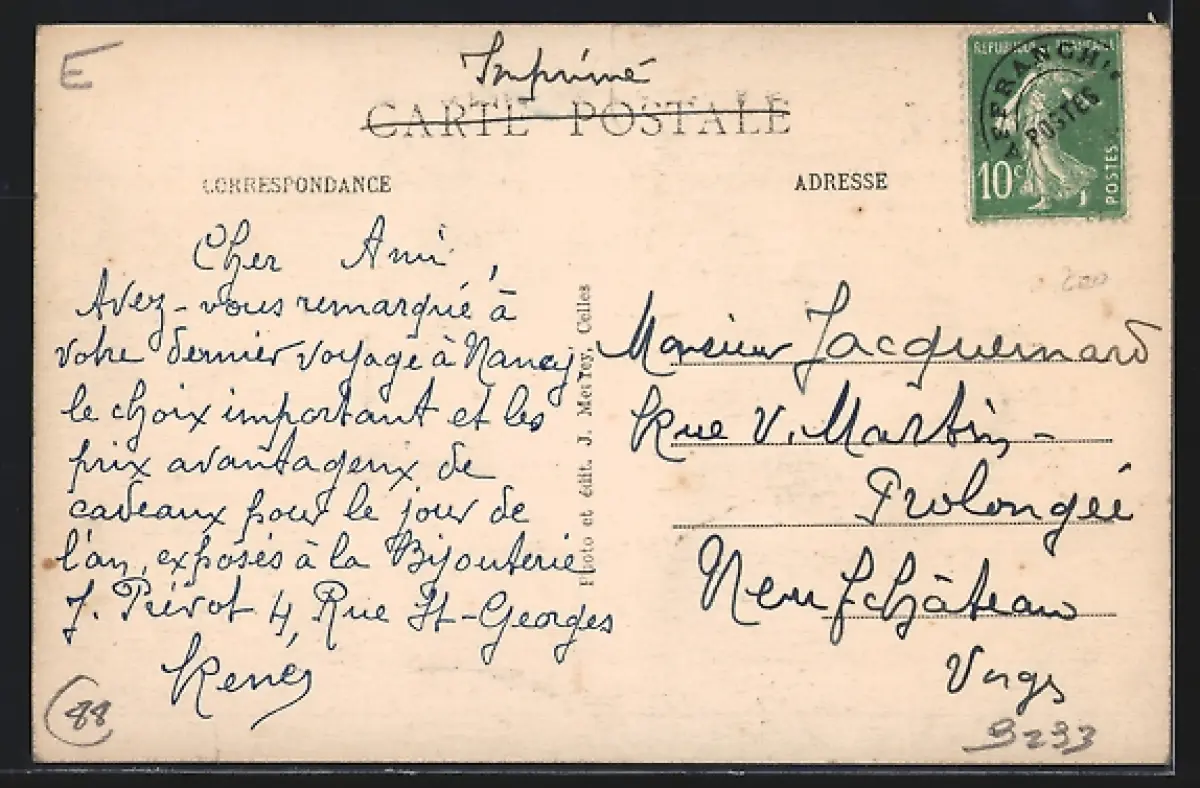 E
Imprimé
CARTE POSTALE
CORRESPONDANCE
ADRESSE
REPUBLIQUE FRANÇAISE
AFFRANCHts
POSTES
10c
POSTES
Cher Ami,
Avez-vous remarqué à
votre dernier voyage à Nancy
le choix important et les
prix avantageux de
cadeaux pour le jour de
l'an, exposés à la Bijouterie
J. Prévot 4, Rue St-Georges
René
Photo et édit. J. Metrey, Celles
Monsieur Jacquemard
Rue V. Martin-
Prolongée
Neufchâteau
Vosges
88
3293